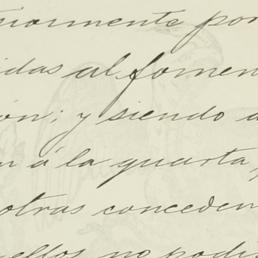 riormente por
idas al fomen
ión; y siendo a
n á la quarta,
otras conceden
ellos no podi